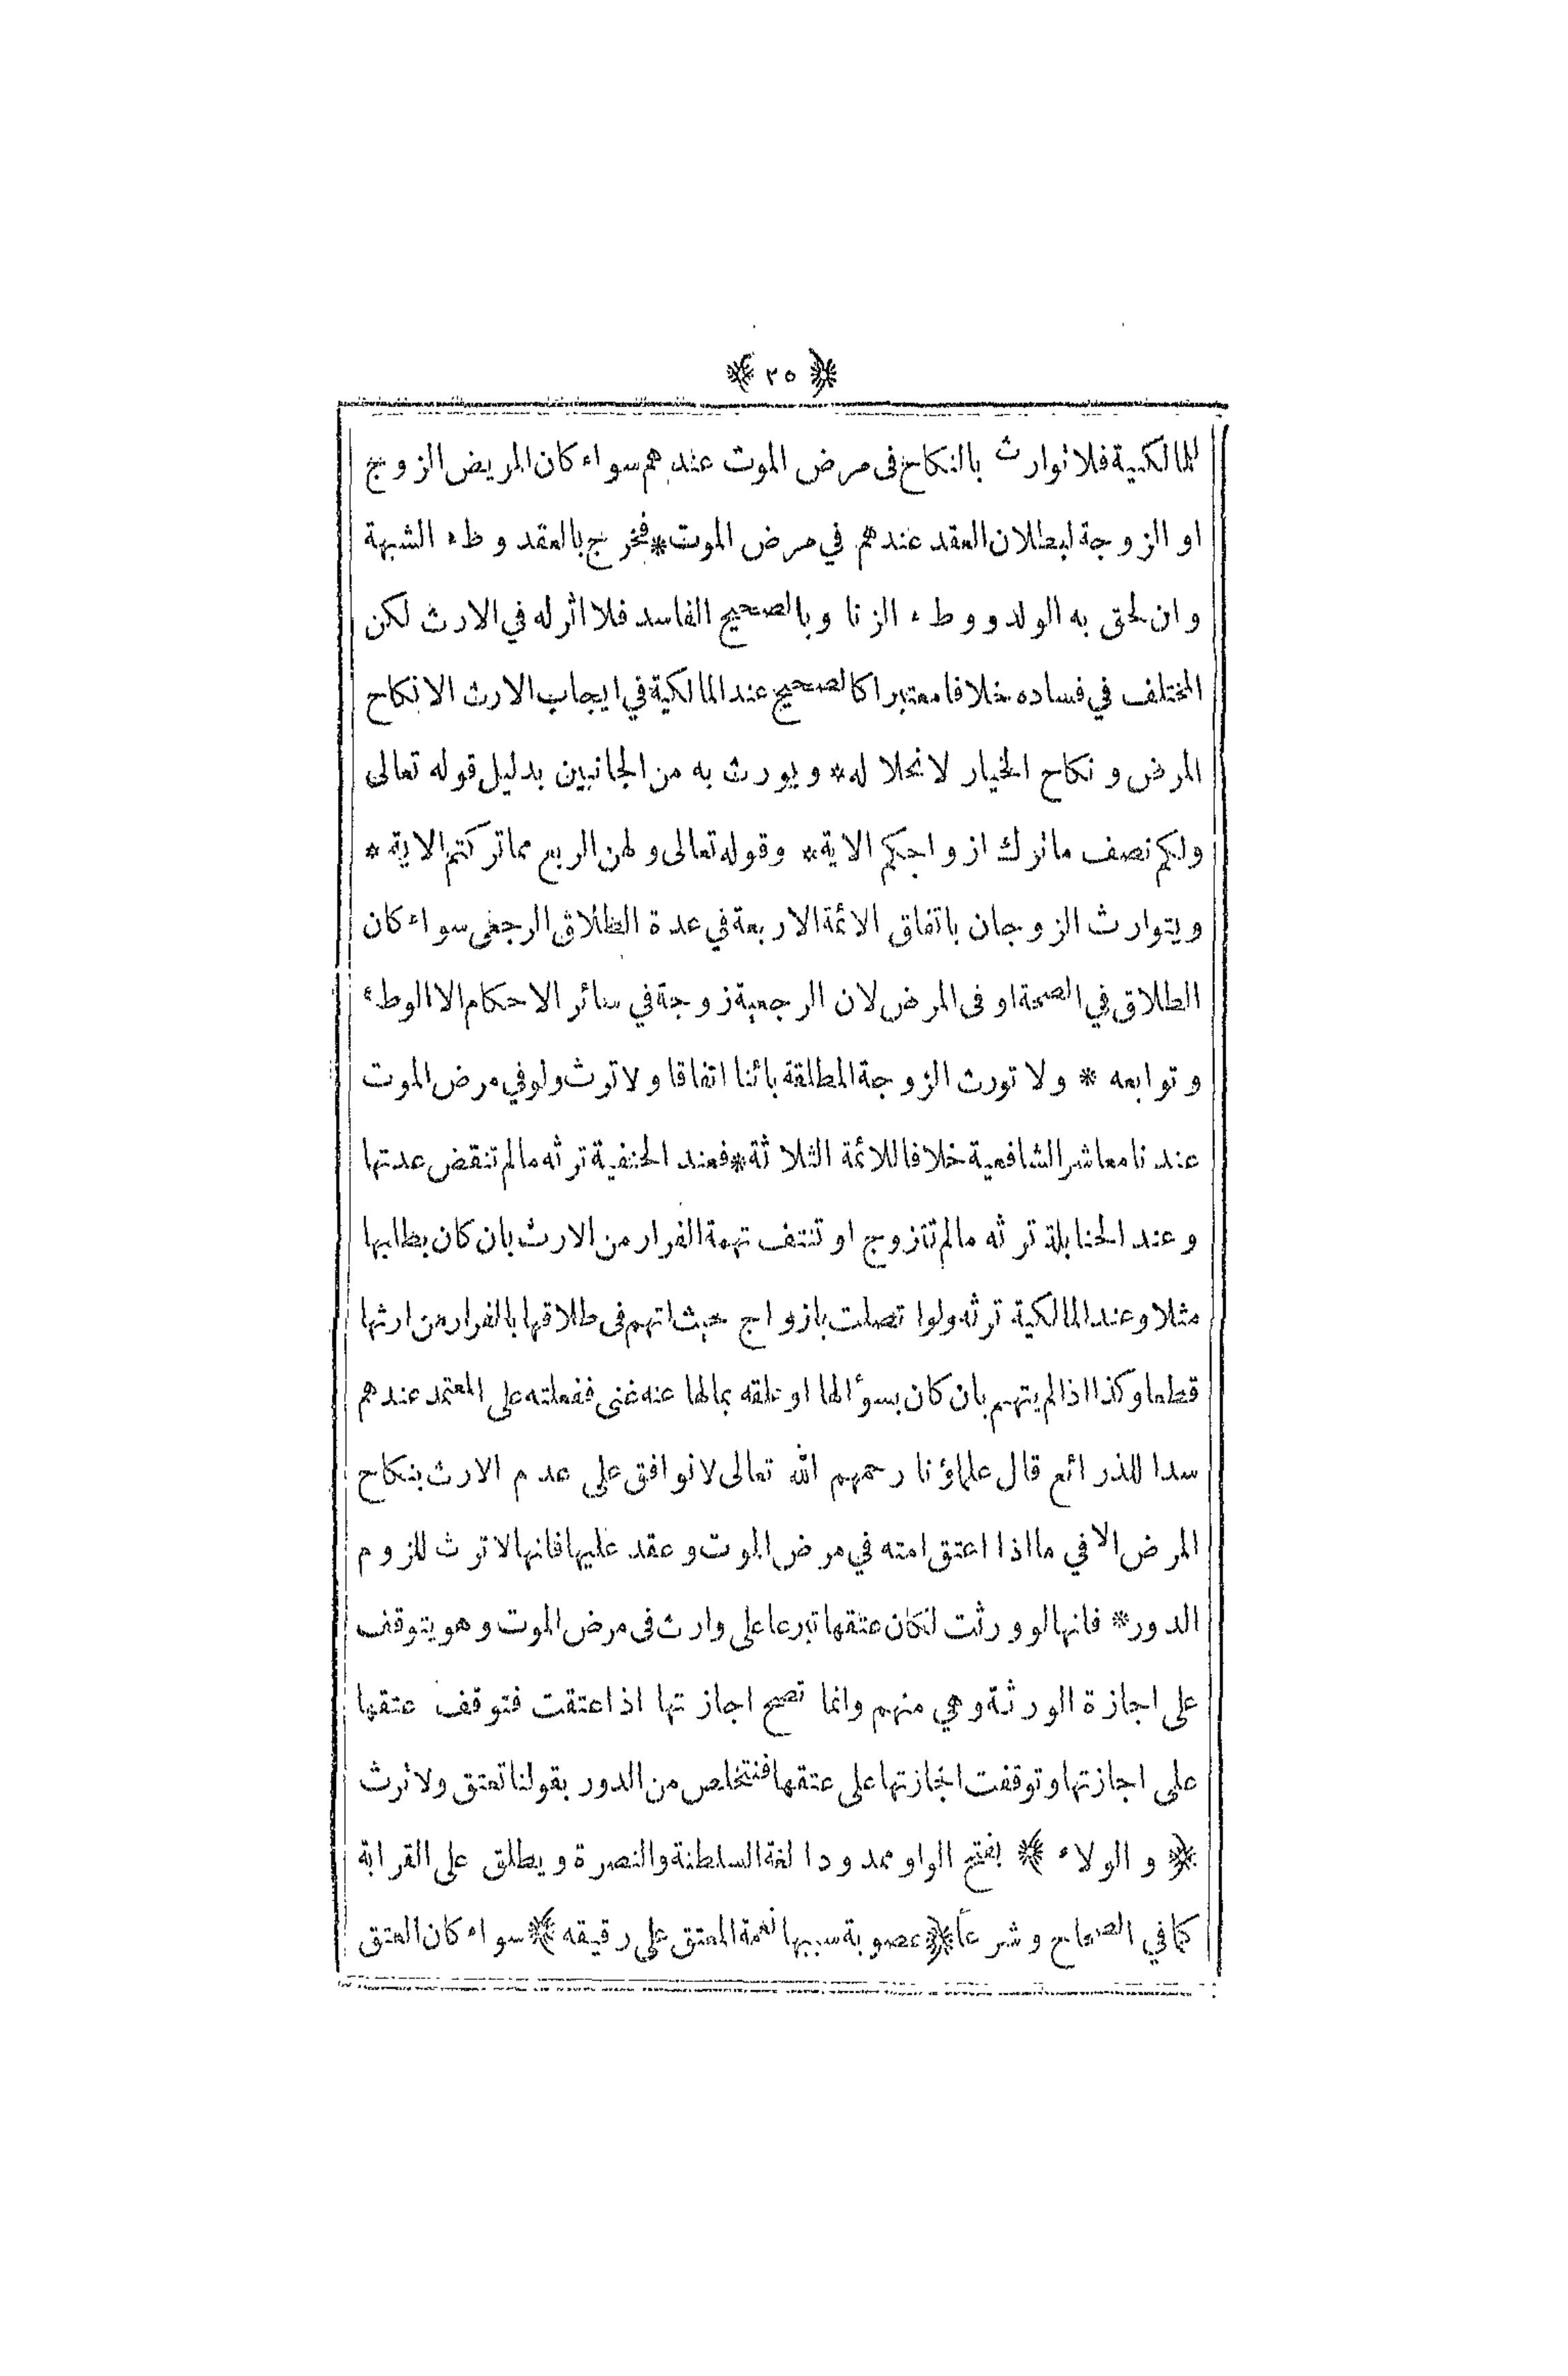 ﴿ ٢٥ ﴾
للمالكية فلا توارث بالنكاح فى مرض الموت عندهم سواء كان المريض الزوج
او الزوجة لبطلان العقد عندهم في مرض الموت * فخرج بالعقد وطء الشبهة
وان لحق به الولد ووطء الزنا وبالصحيح الفاسد فلا اثر له في الارث لكن
المختلف في فساده خلافا معتبرا كالصحيح عند المالكية في ايجاب الارث الا نكاح
المرض ونكاح الخيار لانحلاله * ويورث به من الجانبين بدليل قوله تعالى
ولكم نصف ماترك ازواجكم الاية * وقوله تعالى ولهن الربع مما تركتم الاية *
ويتوارث الزوجان باتفاق الائمة الاربعة في عدة الطلاق الرجعى سواء كان
الطلاق في الصحة او فى المرض لان الرجعية زوجة في سائر الاحكام الا الوطء
وتوابعه * ولا تورث الزوجة المطلقة بائنا اتفاقا ولا ترث ولو في مرض الموت
عندنا معاشر الشافعية خلافا للائمة الثلاثة * فعند الحنفية ترثه مالم تنقض عدتها
وعند الحنابلة ترثه مالم تتزوج او تنتف تهمة الفرار من الارث بان كان بطلبها
مثلا وعند المالكية ترثه ولو اتصلت بازواج حيث اتهم فى طلاقها بالفرار من ارثها
قطعا وكذا اذا لم يتهم بان كان بسؤالها او علقه بمالها عنه غنى ففعلته على المعتمد عندهم
سدا للذرائع قال علماؤنا رحمهم الله تعالى لا نوافق على عدم الارث بنكاح
المرض الا في ما اذا اعتق امته في مرض الموت وعقد عليها فانها لا ترث للزوم
الدور * فانها لو ورثت لكان عتقها تبرعا على وارث فى مرض الموت وهو يتوقف
على اجازة الورثة وهي منهم وانما تصح اجازتها اذا عتقت فتوقف عتقها
على اجازتها وتوقفت اجازتها على عتقها فنتخلص من الدور بقولنا تعتق ولا ترث
﴿ والولاء ﴾ بفتح الواو ممدودا لغة السلطنة والنصرة ويطلق على القرابة
كما في الصحاح وشرعاً ﴿ عصوبة سببها نعمة المعتق على رقيقه ﴾ سواء كان العتق